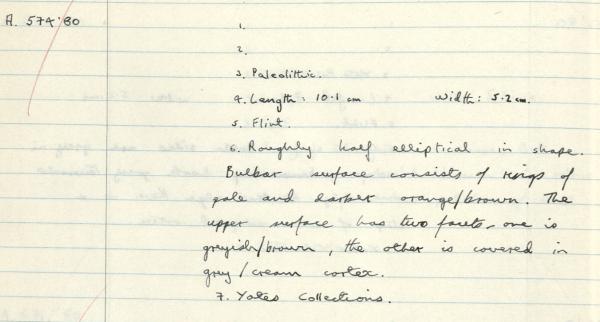 A. 574'80
1.
2.
3. Paleolithic.
4. Length: 10.1 cm Width: 5.2 cm.
5. Flint.
6. Roughly half elliptical in shape.
Bulbar surface consists of rings of
pale and darker orange/brown. The
upper surface has two facets - one is
greyish/brown, the other is covered in
grey/cream cortex.
7. Yates Collections.